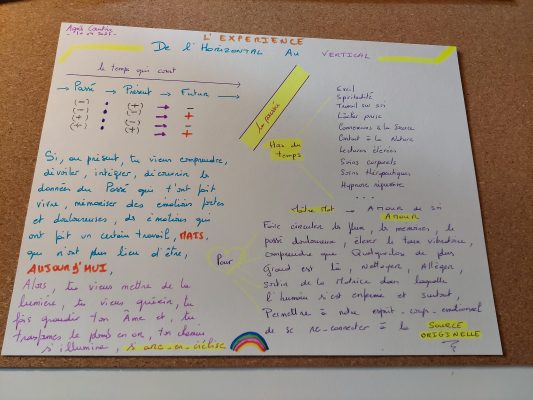 L'EXPERIENCE
De l'Horizontal Au VERTICAL
le temps qui court
→ Passé → Présent → Futur →
(-) • (+) → -
(-) • (+) → +
(+) • (-) → -
(+) • (+) → +
La passoire
Hors du temps
Eveil
Spiritualité
Travail sur soi
Lâcher prise
Connexions à la Source
Contact à la Nature
Lectures éclairées
Soins corporels
Soins thérapeutiques
Hypnose régressive
...
Si, au présent, tu viens comprendre,
dévoiler, intégrer, découvrir les
données du Passé qui t'ont fait
vivre, mémoriser des émotions fortes
et douloureuses, des émotions qui
ont fait un certain travail, MAIS,
qui n'ont plus lieu d'être,
AUJOURD'HUI,
Alors, tu viens mettre de la
lumière, tu viens guérir, tu
fais grandir ton Âme et, tu
transformes le plomb en or, ton chemin
s'illumine, s'arc-en-ciélise
Pour
Maître Mot → AMOUR de soi
AMOUR
Faire circuler les flux, les mémoires, le
passé douloureux, élever le taux vibratoire,
comprendre que Quelquechose de plus
Grand est là, Nettoyer, Alléger,
Sortir de la Matrice dans laquelle
l'humain s'est enfermé et surtout,
Permettre à notre esprit-corps-émotionnel
de se re-connecter à la SOURCE
ORIGINELLE